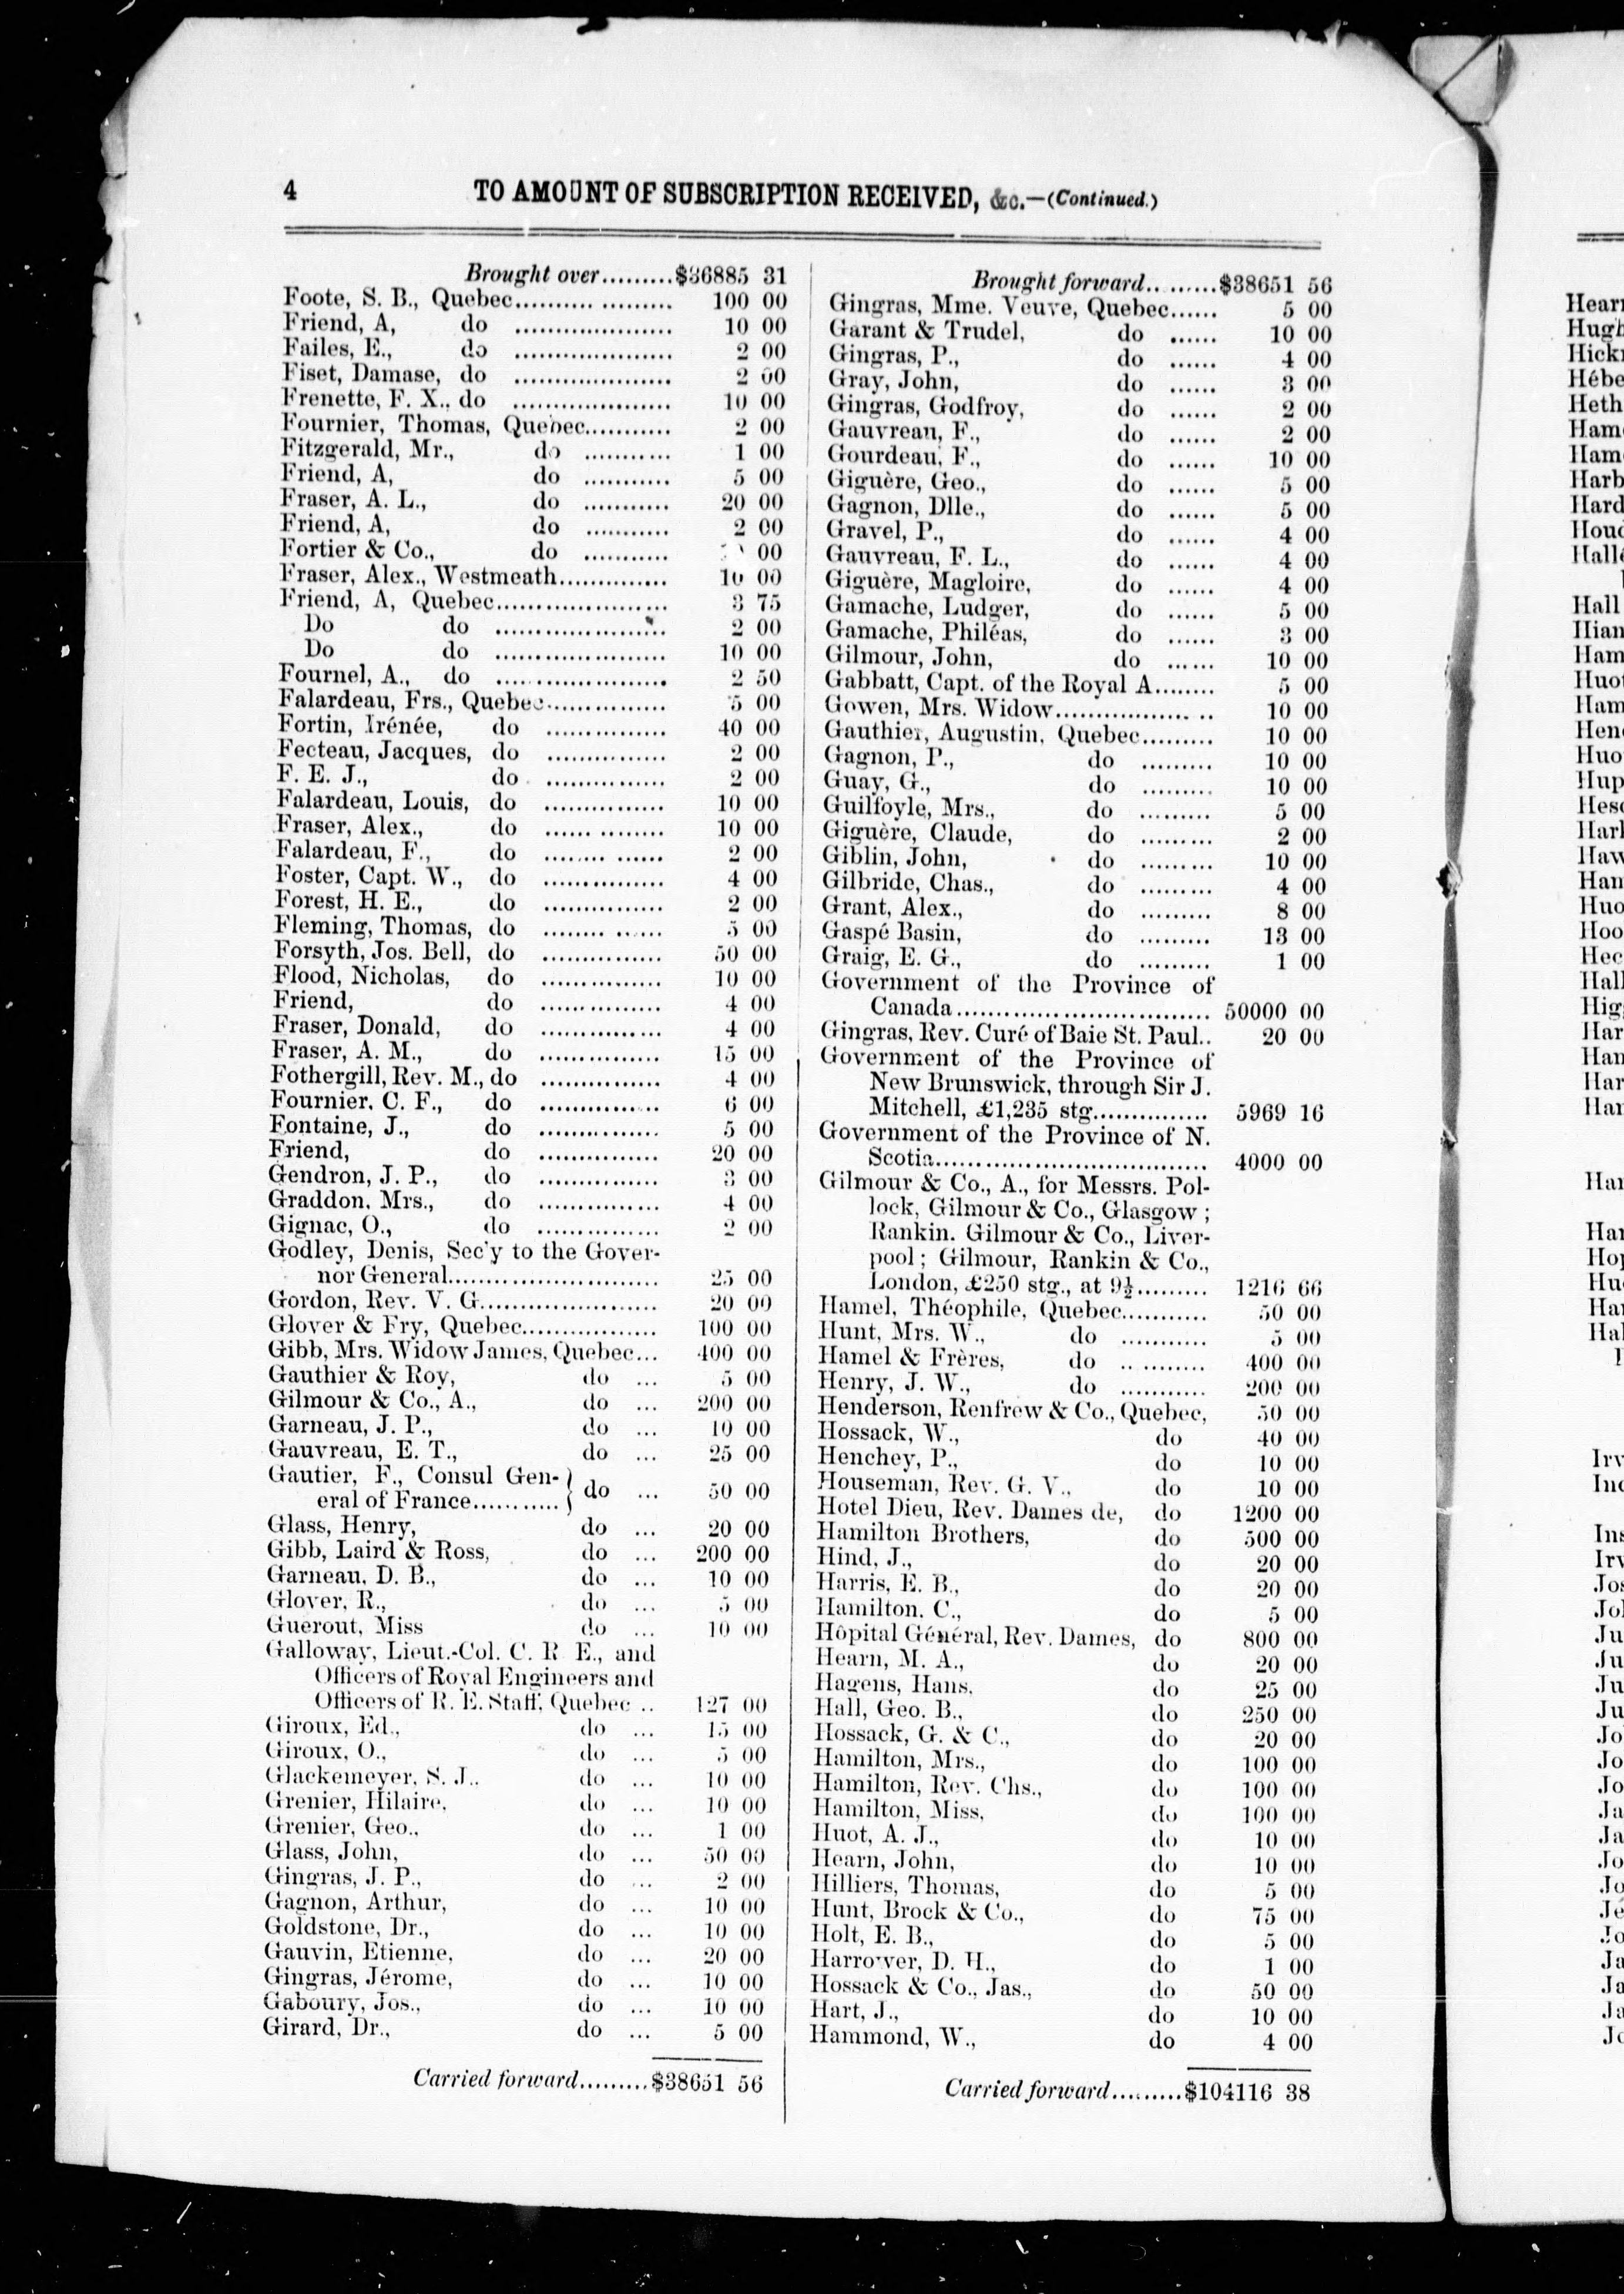 4
TO AMOUNT OF SUBSCRIPTION RECEIVED, &c.—(Continued.)
Brought over.........$36885 31
Foote, S. B., Quebec.......... ......... 100 00
Friend, A, do .................... 10 00
Failes, E., do .................... 2 00
Fiset, Damase, do .................... 2 00
Frenette, F. X., do .................... 10 00
Fournier, Thomas, Quebec........... 2 00
Fitzgerald, Mr., do ........... 1 00
Friend, A, do ........... 5 00
Fraser, A. L., do ........... 20 00
Friend, A, do ........... 2 00
Fortier & Co., do ........... 00
Fraser, Alex., Westmeath.............. 10 00
Friend, A, Quebec...................... 3 75
Do do ...................... 2 00
Do do ...................... 10 00
Fournel, A., do ...................... 2 50
Falardeau, Frs., Quebec............... 5 00
Fortin, Irénée, do ............... 40 00
Fecteau, Jacques, do ............... 2 00
F. E. J., do ............... 2 00
Falardeau, Louis, do ............... 10 00
Fraser, Alex., do ...... ........ 10 00
Falardeau, F., do ........ ...... 2 00
Foster, Capt. W., do ............... 4 00
Forest, H. E., do ............... 2 00
Fleming, Thomas, do ........ ...... 5 00
Forsyth, Jos. Bell, do ............... 50 00
Flood, Nicholas, do ............... 10 00
Friend, do ............... 4 00
Fraser, Donald, do ............... 4 00
Fraser, A. M., do ............... 15 00
Fothergill, Rev. M., do ............... 4 00
Fournier, C. F., do ............... 6 00
Fontaine, J., do ............... 5 00
Friend, do ............... 20 00
Gendron, J. P., do ............... 3 00
Graddon, Mrs., do ............... 4 00
Gignac, O., do ............... 2 00
Godley, Denis, Sec'y to the Gover-
nor General.......................... 25 00
Gordon, Rev. V. G...................... 20 00
Glover & Fry, Quebec................. 100 00
Gibb, Mrs. Widow James, Quebec... 400 00
Gauthier & Roy, do ... 5 00
Gilmour & Co., A., do ... 200 00
Garneau, J. P., do ... 10 00
Gauvreau, E. T., do ... 25 00
Gautier, F., Consul Gen- }
eral of France........... } do ... 50 00
Glass, Henry, do ... 20 00
Gibb, Laird & Ross, do ... 200 00
Garneau, D. B., do ... 10 00
Glover, R., do ... 5 00
Guerout, Miss do ... 10 00
Galloway, Lieut.-Col. C. R E., and
Officers of Royal Engineers and
Officers of R. E. Staff, Quebec .. 127 00
Giroux, Ed., do ... 15 00
Giroux, O., do ... 5 00
Glackemeyer, S. J., do ... 10 00
Grenier, Hilaire, do ... 10 00
Grenier, Geo., do ... 1 00
Glass, John, do ... 50 00
Gingras, J. P., do ... 2 00
Gagnon, Arthur, do ... 10 00
Goldstone, Dr., do ... 10 00
Gauvin, Etienne, do ... 20 00
Gingras, Jérome, do ... 10 00
Gaboury, Jos., do ... 10 00
Girard, Dr., do ... 5 00
Carried forward.........$38651 56
Brought forward.. ......$38651 56
Gingras, Mme. Veuve, Quebec...... 5 00
Garant & Trudel, do ...... 10 00
Gingras, P., do ...... 4 00
Gray, John, do ...... 3 00
Gingras, Godfroy, do ...... 2 00
Gauvreau, F., do ...... 2 00
Gourdeau, F., do ...... 10 00
Giguère, Geo., do ...... 5 00
Gagnon, Dlle., do ...... 5 00
Gravel, P., do ...... 4 00
Gauvreau, F. L., do ...... 4 00
Giguère, Magloire, do ...... 4 00
Gamache, Ludger, do ...... 5 00
Gamache, Philéas, do ...... 3 00
Gilmour, John, do ...... 10 00
Gabbatt, Capt. of the Royal A........ 5 00
Gowen, Mrs. Widow................. .. 10 00
Gauthier, Augustin, Quebec......... 10 00
Gagnon, P., do ......... 10 00
Guay, G., do ......... 10 00
Guilfoyle, Mrs., do ......... 5 00
Giguère, Claude, do ......... 2 00
Giblin, John, do ......... 10 00
Gilbride, Chas., do ......... 4 00
Grant, Alex., do ......... 8 00
Gaspé Basin, do ......... 13 00
Graig, E. G., do ......... 1 00
Government of the Province of
Canada................................ 50000 00
Gingras, Rev. Curé of Baie St. Paul.. 20 00
Government of the Province of
New Brunswick, through Sir J.
Mitchell, £1,235 stg............... 5969 16
Government of the Province of N.
Scotia.................................. 4000 00
Gilmour & Co., A., for Messrs. Pol-
lock, Gilmour & Co., Glasgow ;
Rankin, Gilmour & Co., Liver-
pool ; Gilmour, Rankin & Co.,
London, £250 stg., at 9½......... 1216 66
Hamel, Théophile, Quebec........... 50 00
Hunt, Mrs. W., do ........... 5 00
Hamel & Frères, do .. ........ 400 00
Henry, J. W., do ........... 200 00
Henderson, Renfrew & Co., Quebec, 50 00
Hossack, W., do 40 00
Henchey, P., do 10 00
Houseman, Rev. G. V., do 10 00
Hotel Dieu, Rev. Dames de, do 1200 00
Hamilton Brothers, do 500 00
Hind, J., do 20 00
Harris, E. B., do 20 00
Hamilton, C., do 5 00
Hôpital Général, Rev. Dames, do 800 00
Hearn, M. A., do 20 00
Hagens, Hans, do 25 00
Hall, Geo. B., do 250 00
Hossack, G. & C., do 20 00
Hamilton, Mrs., do 100 00
Hamilton, Rev. Chs., do 100 00
Hamilton, Miss, do 100 00
Huot, A. J., do 10 00
Hearn, John, do 10 00
Hilliers, Thomas, do 5 00
Hunt, Brock & Co., do 75 00
Holt, E. B., do 5 00
Harrower, D. H., do 1 00
Hossack & Co., Jas., do 50 00
Hart, J., do 10 00
Hammond, W., do 4 00
Carried forward.........$104116 38